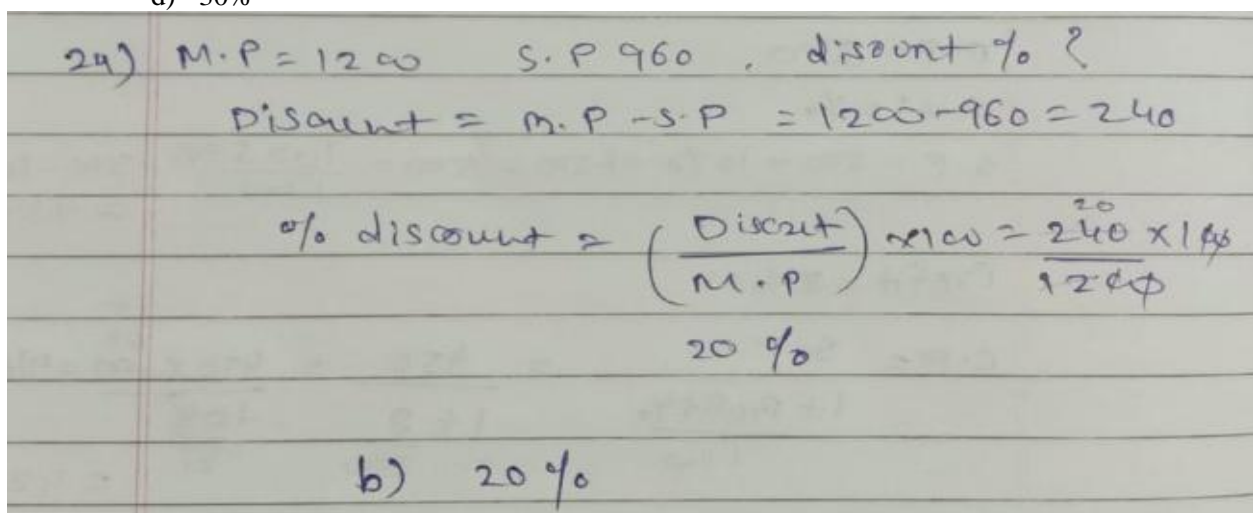 d) 30%
24) M.P = 1200 S.P 960 . disount % ?
Disount = M.P - S.P = 1200-960 = 240
% discount = (Discnt / M.P) x100 = 20 240 x 100 / 1200
20 %
b) 20 %